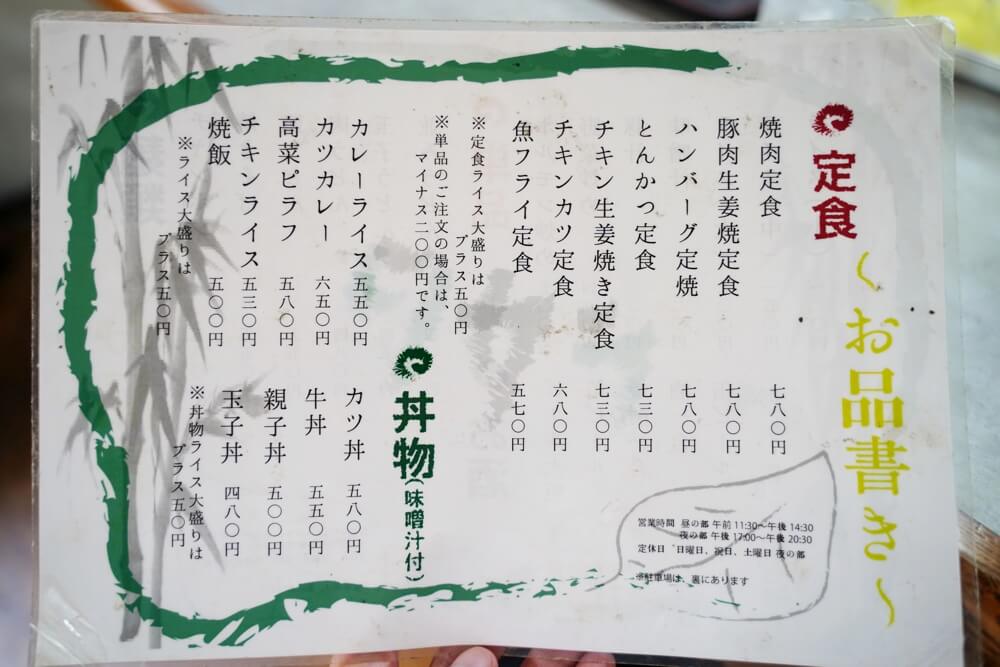 〜お品書き〜
定食
焼肉定食 七八〇円
豚肉生姜焼定食 七八〇円
ハンバーグ定焼 七八〇円
とんかつ定食 七三〇円
チキン生姜焼き定食 七三〇円
チキンカツ定食 六八〇円
魚フライ定食 五七〇円
※定食ライス大盛りは
プラス五〇円
※単品のご注文の場合は、
マイナス二〇〇円です。
カレーライス 五五〇円
カツカレー 六五〇円
高菜ピラフ 五八〇円
チキンライス 五三〇円
焼飯 五〇〇円
※ライス大盛りは
プラス五〇円
丼物(味噌汁付)
カツ丼 五八〇円
牛丼 五五〇円
親子丼 五〇〇円
玉子丼 四八〇円
※丼物ライス大盛りは
プラス五〇円
営業時間 昼の部 午前 11:30〜午後 14:30
夜の部 午後 17:00〜午後 20:30
定休日 日曜日、祝日、土曜日 夜の部
※駐車場は、裏にあります